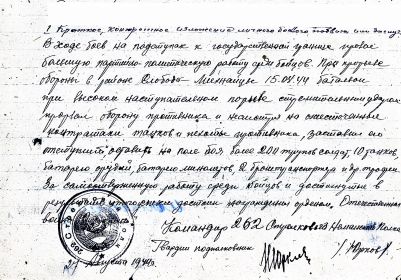 1 Краткое, конкретное изложение личного боевого подвига или заслуг
В ходе боев на подступах к государственной границе провел
большую партийно-политическую работу среди бойцов. При прорыве
обороны в районе Слобода 15.08.44 батальон
при высоком наступательном порыве стремительным ударом
прорвал оборону противника и несмотря на ожесточенные
контратаки танков и пехоты противника, заставил его
отступить оставить на поле боя более 200 трупов солдат, 10 танков,
батарею орудий, батарею минометов, 2 бронетранспортера и др. трофеи
За самоотверженную работу среди бойцов и достигнутые в
результате успехи достоин награждения орденом „Отечественной
войны
Командир 262 Стрелкового полка
Гвардии подполковник /Юрков/
августа 1944